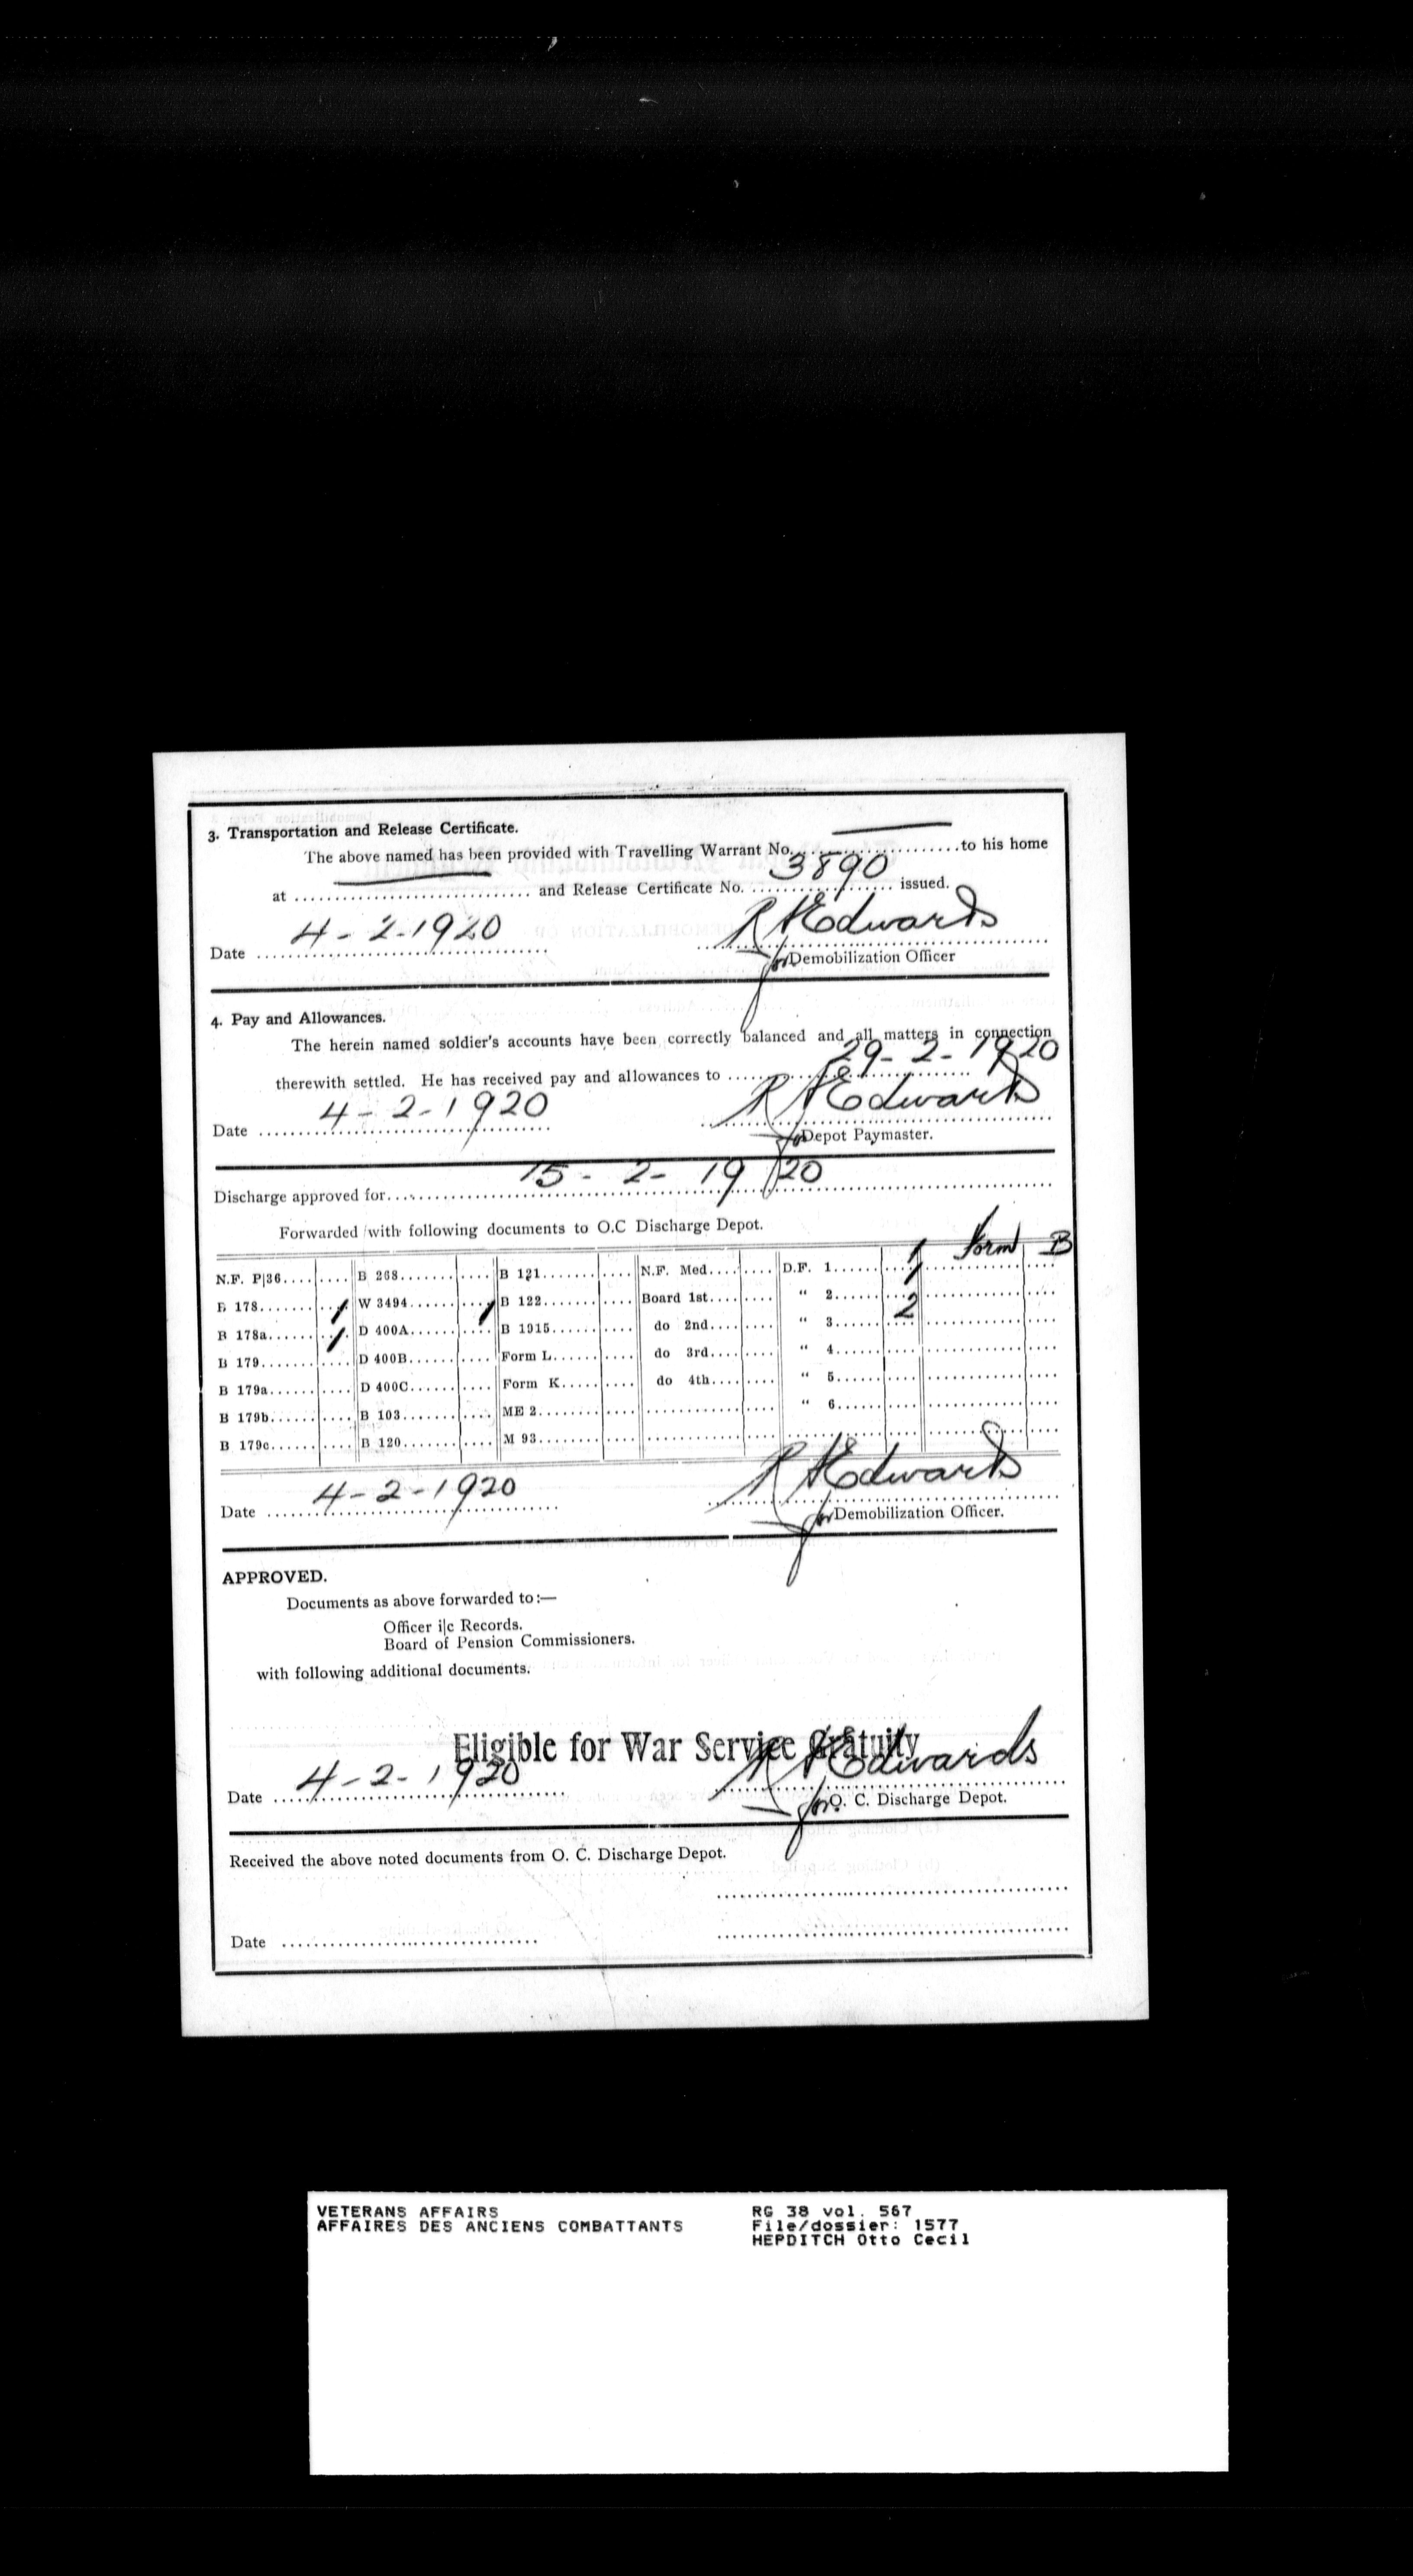 3. Transportation and Release Certificate.
The above named has been provided with Travelling Warrant No. ——— to his home
at ——— and Release Certificate No. 3890 issued.
Date 4-2-1920 R H Edwards
for Demobilization Officer
4. Pay and Allowances.
The herein named soldier's accounts have been correctly balanced and all matters in connection
therewith settled. He has received pay and allowances to 29-2-1920
Date 4-2-1920 R H Edwards
for Depot Paymaster.
Discharge approved for 15-2-1920
Forwarded with following documents to O.C Discharge Depot.
Form B
N.F. P|36.... B 268.... B 121.... N.F. Med.... D.F. 1.... 1
B 178.... 1 W 3494.... 1 B 122.... Board 1st.... " 2.... 1
B 178a.... 1 D 400A.... B 1915.... do 2nd.... " 3.... 2
B 179.... D 400B.... Form L.... do 3rd.... " 4....
B 179a.... D 400C.... Form K.... do 4th.... " 5....
B 179b.... B 103.... ME 2.... " 6....
B 179c.... B 120.... M 93....
Date 4-2-1920 R H Edwards
for Demobilization Officer.
APPROVED.
Documents as above forwarded to:—
Officer i|c Records.
Board of Pension Commissioners.
with following additional documents.
Eligible for War Service Gratuity
Date 4-2-1920 R H Edwards
for O. C. Discharge Depot.
Received the above noted documents from O. C. Discharge Depot.
Date
VETERANS AFFAIRS RG 38 vol. 567
AFFAIRES DES ANCIENS COMBATTANTS File/dossier: 1577
HEPDITCH Otto Cecil